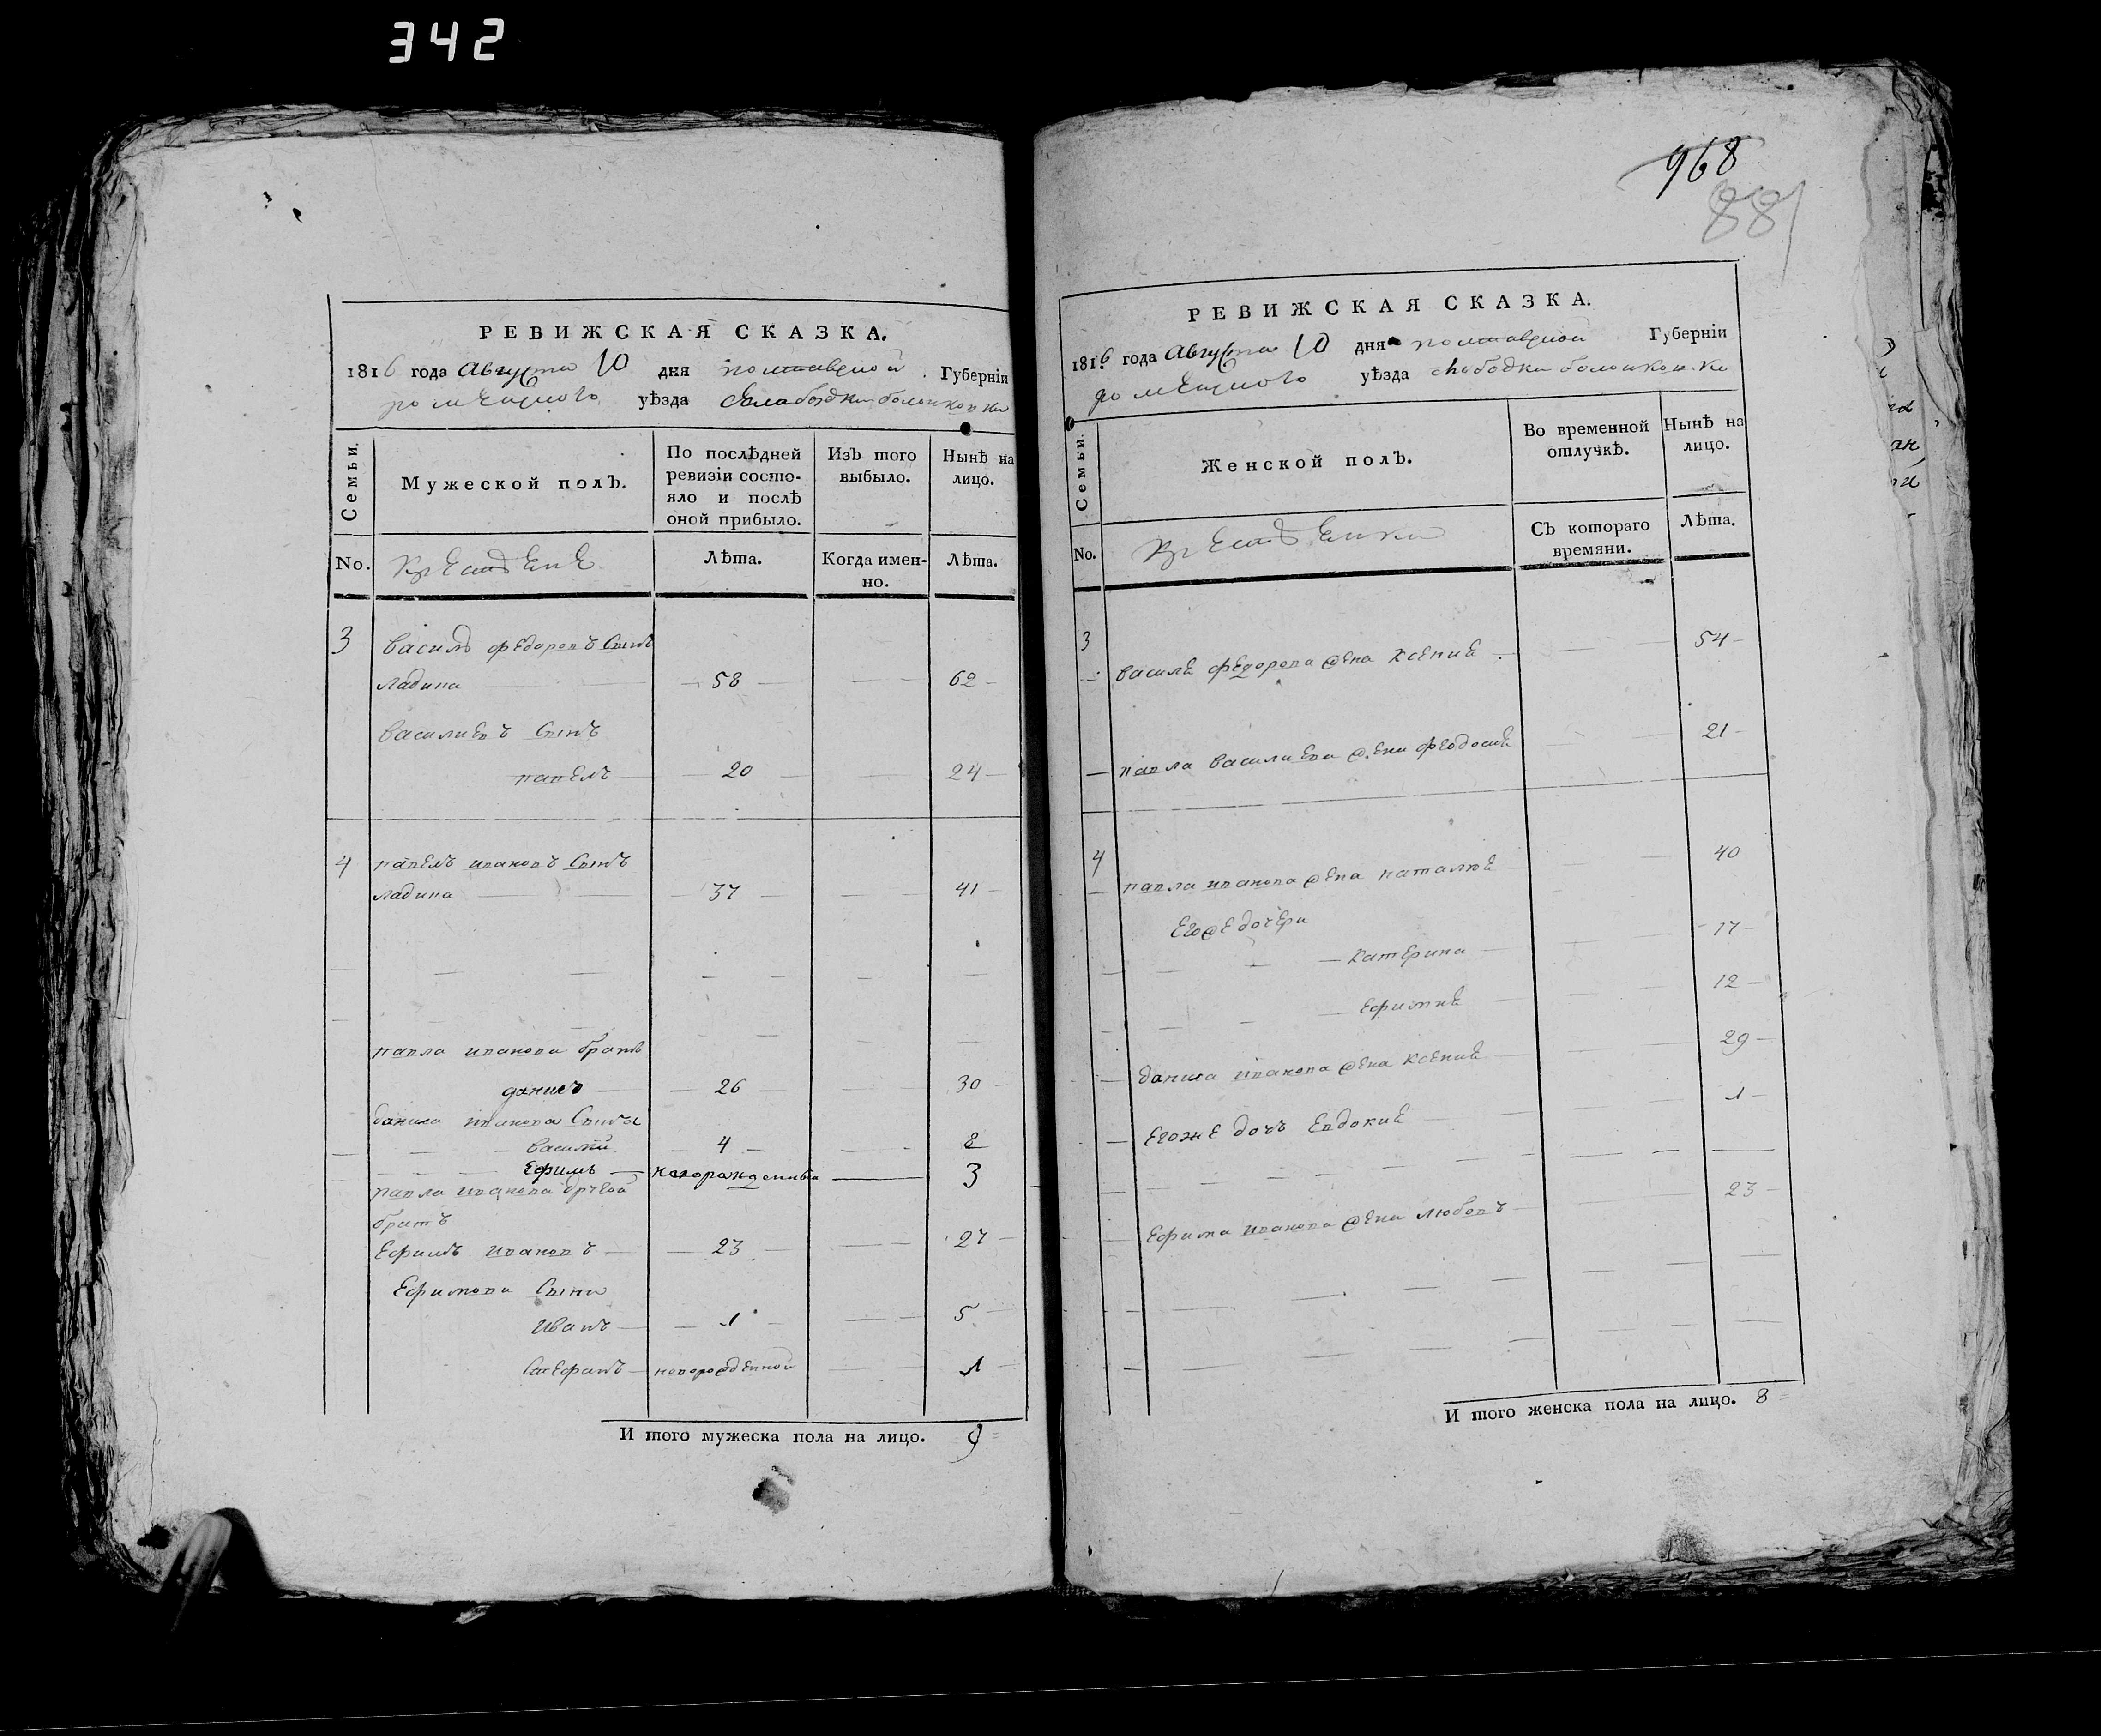 342
РЕВИЖСКАЯ СКАЗКА.
1816 года Августа 10 дня полтавской Губерніи
роменского уѣзда
Семьи.
Мужеской полъ.
По послѣдней ревизіи состо-
яло и послѣ
оной прибыло.
Изъ того
выбыло.
Нынѣ на
лицо.
No.
Лѣта.
Когда имен-
но.
Лѣта.
3 василь федоровъ Сынъ
ладина 58 62
василиевъ Сынъ
павелъ 20 24
4 павелъ ивановъ Сынъ
ладина 37 41
павла иванова братъ
данило 26 30
данила иванова Сыны
василий 4 8
Ефимъ новорожденный 3
павла иванова другой
братъ
Ефимъ ивановъ 23 27
Ефимова Сыны
Иванъ 1 5
Стефанъ новорожденной 1
И того мужеска пола на лицо. 9
968
881
РЕВИЖСКАЯ СКАЗКА.
1816 года Августа 10 дня полтавской Губерніи
роменского уѣзда слободки
Семьи.
Женской полъ.
Во временной
отлучкѣ.
Нынѣ на
лицо.
No.
Съ котораго
времяни.
Лѣта.
3 василя федорова жена Ксения 54
павла василиева жена феодосия 21
4 павла иванова жена наталия 40
Егоже дочери
Катерина 17
Ефимия 12
данила иванова жена Ксения 29
Егоже дочь Евдокия 1
Ефима иванова жена любовъ 23
И того женска пола на лицо. 8